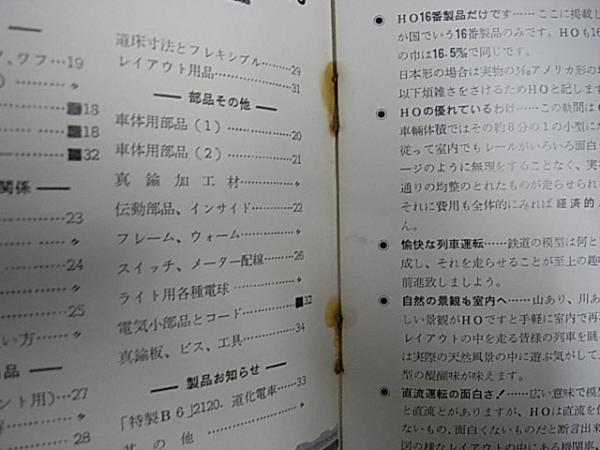 、ワフ…19
〃
18
18
32
関係
23
〃
24
〃
25
い方…〃
品
ント用)…27
〃
28
道床寸法とフレキシブル……29
レイアウト用品……31
部品その他
車体用部品(1)……20
車体用部品(2)……21
真鍮加工材……〃
伝動部品、インサイド……22
フレーム、ウォーム……〃
スイッチ、メーター配線……26
ライト用各種電球……〃
電気小部品とコード……32
真鍮板、ビス、工具……34
製品お知らせ
「特製B6」2120.道化電車……33
其の他……〃
● HO16番製品だけです……ここに掲載し
が国でいう16番製品のみです。HOも16
の巾は16.5%で同じです。
日本形の場合は実物の1/80アメリカ形の場
以下煩雑さをさけるためHOと記します
● HOの優れているわけ……この軌間は
車輛体積ではその約8分の1の小型に
従って室内でもレールがいろいろ面白
ージのように無理をすることなく、実
通りの均整のとれたものが走らせられ
それに費用も全体的にみれば経済的
ん。
● 愉快な列車運転……鉄道の模型は何と
成し、それを走らせることが至上の趣
前進致しましょう。
● 自然の景観も室内へ……山あり、川あ
しい景観がHOですと手軽に室内で再
レイアウトの中を走る皆様の列車を眺
は実際の天然風景の中に遊ぶ気がして
型の醍醐味が味えます。
● 直流運転の面白さ!……広い意味で模
と直流とがありますが、HOは直流を
ないもの、面白くないものだと断言出来
図の様なレイアウトの中にある機関車、